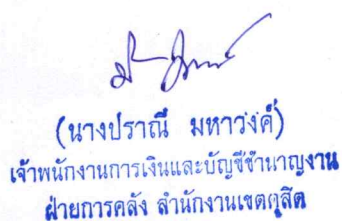 (นางปราณี มหาวงค์)
เจ้าพนักงานการเงินและบัญชีชำนาญงาน
ฝ่ายการคลัง สำนักงานเขตดุสิต